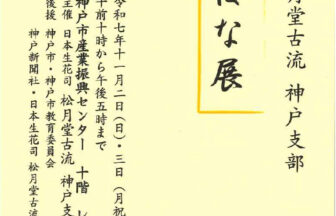 月堂古流 神戸支部
な展
令和七年十一月二日（日）・三日（月祝
午前十時から午後五時まで
神戸市産業振興センター 十階
主催 日本生花司 松月堂古流 神戸支
後援 神戸市・神戸市教育委員会
神戸新聞社・日本生花司 松月堂古流